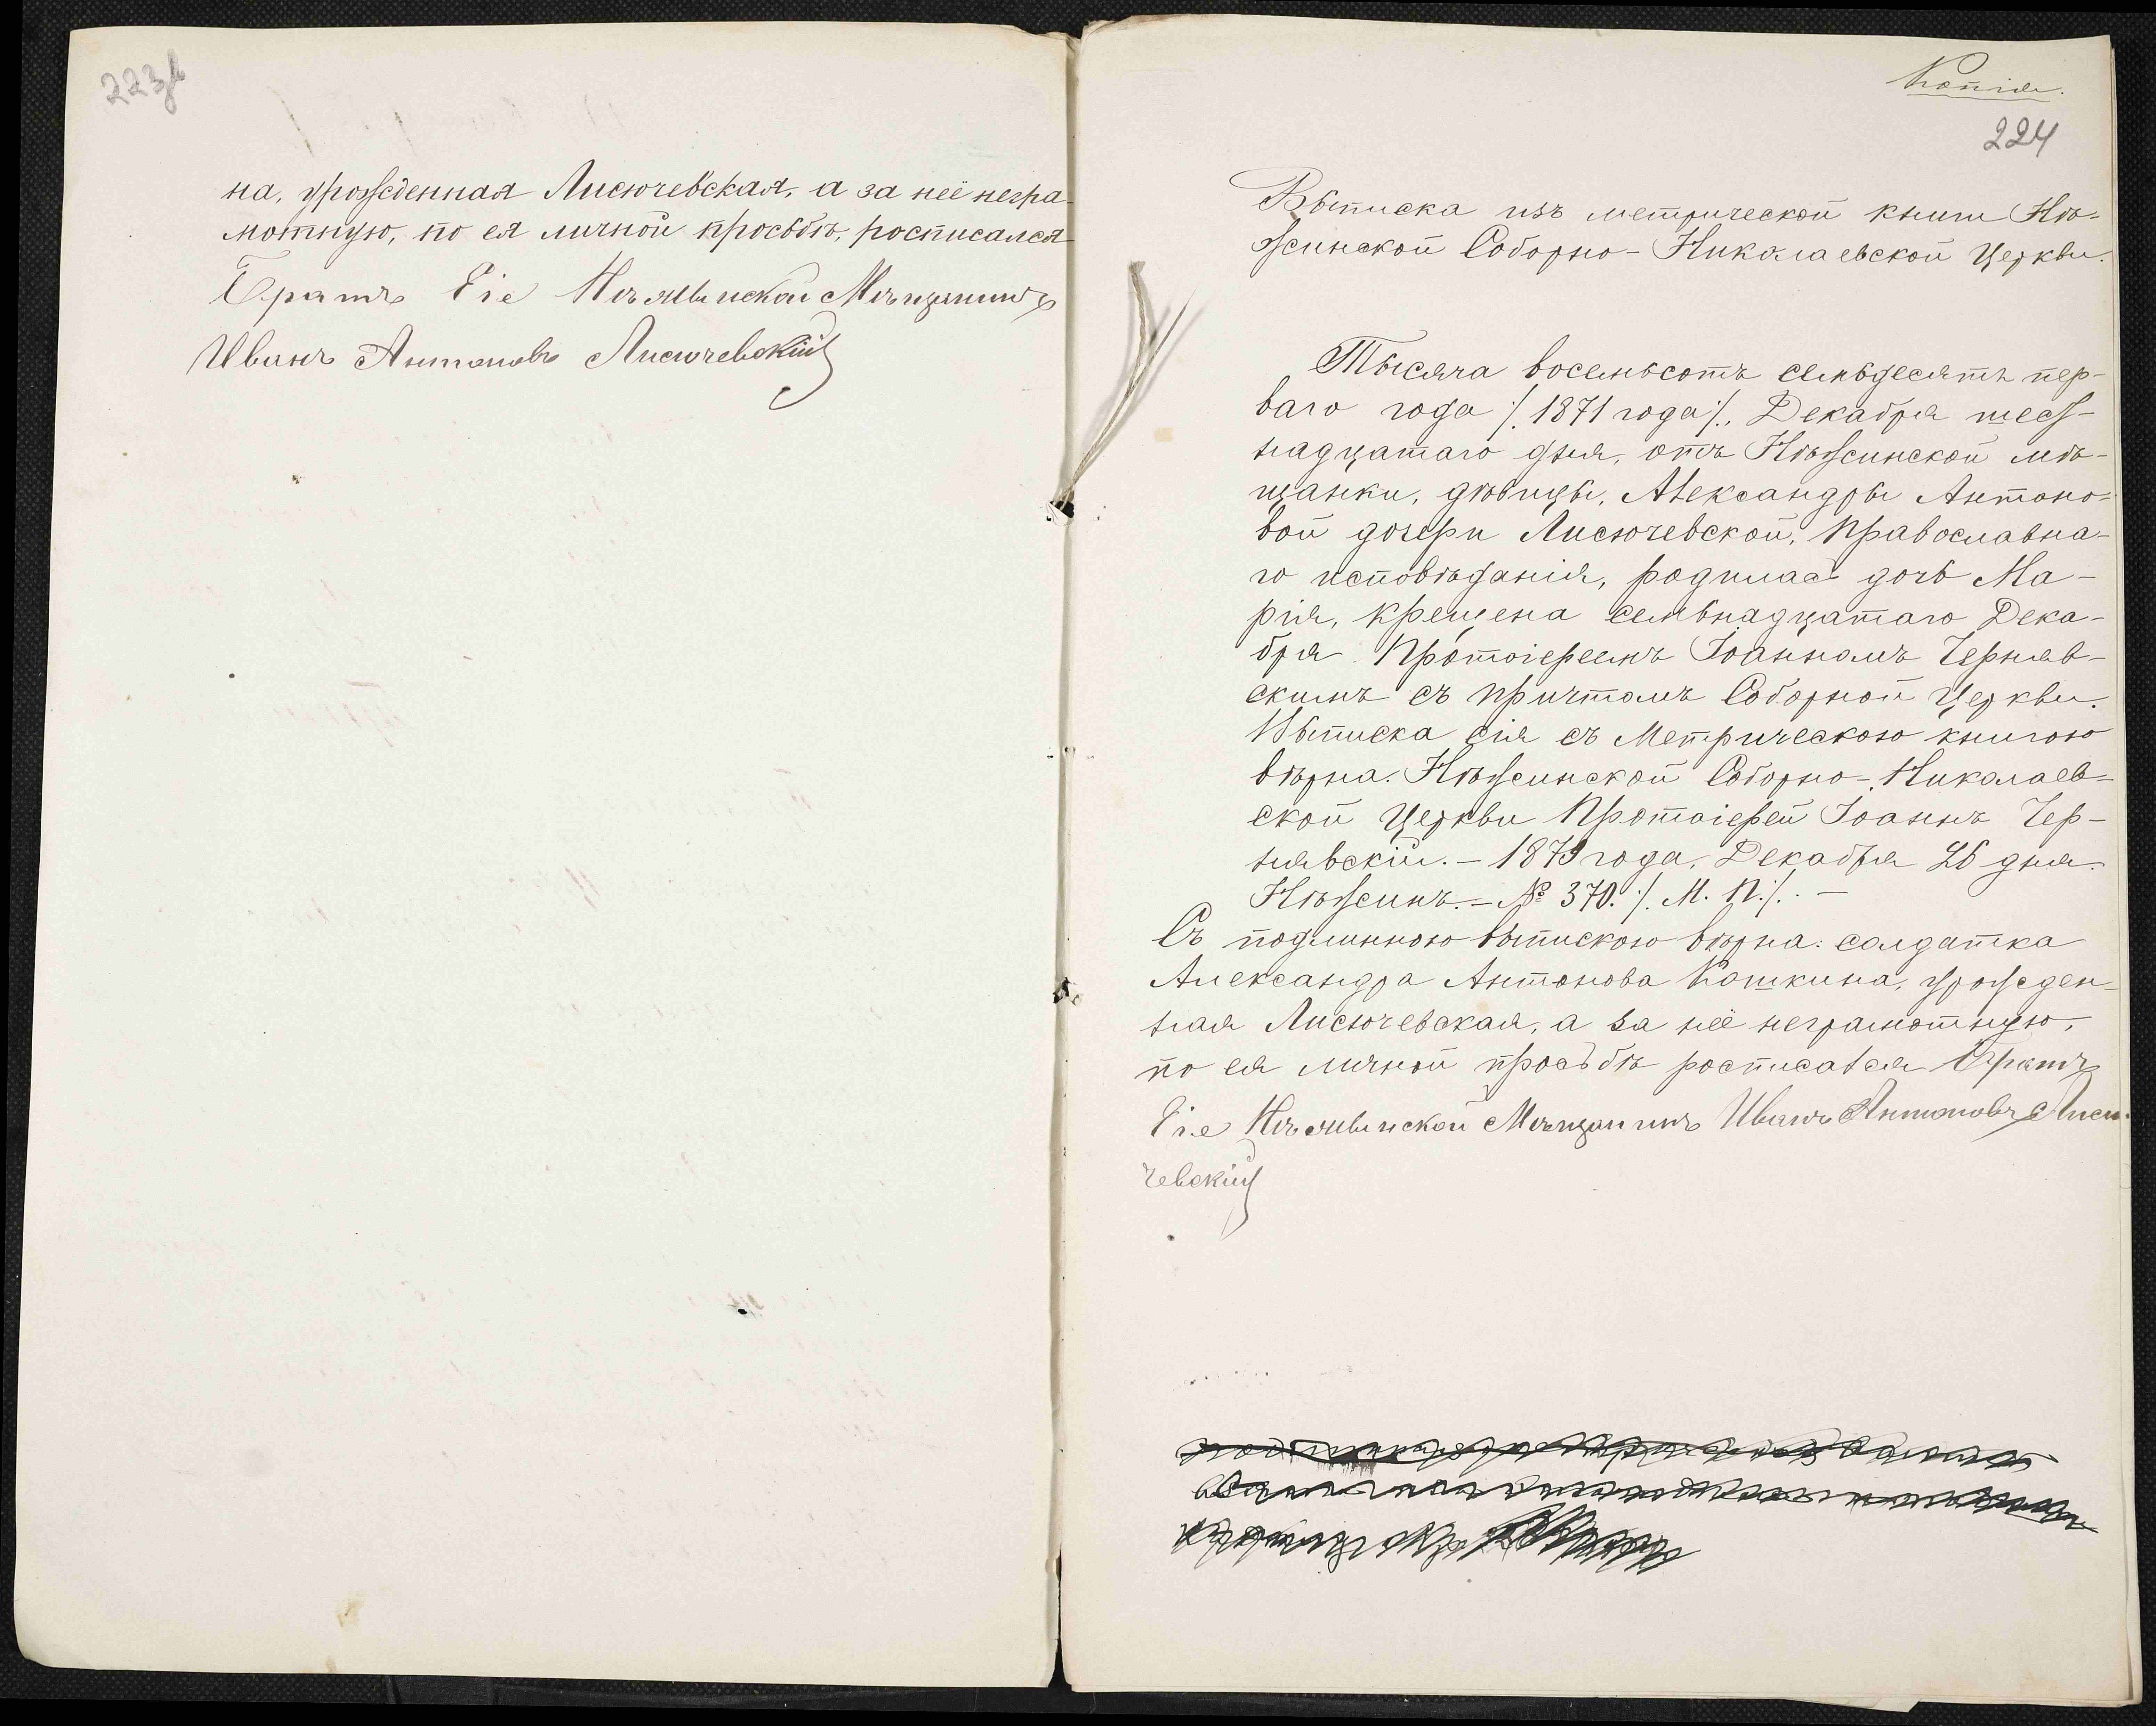 223б
на, урожденная Лисючевская, а за неё негра-
мотную, по ея личной просьбѣ, росписался
Братъ Еіе Нѣжинской Мѣщанинъ
Иванъ Антоновъ Лисючевскій
Копія.
224
Выписка изъ метрической книги Нѣ-
жинской Соборно-Николаевской Церкви.
Тысяча восемьсотъ семьдесятъ пер-
ваго года /. 1871 года /., Декабря шест-
надцатаго дня, отъ Нѣжинской мѣ-
щанки, дѣвицы, Александры Антоно-
вой дочери Лисючевской, Православна-
го исповѣданія, родилась дочь Ма-
рія, крещена семьнадцатаго Дека-
бря Протоіереемъ Іоанномъ Черняв-
скимъ съ причтомъ Соборной Церкви.
Выписка сія съ Метрическою книгою
вѣрна. Нѣжинской Соборно-Николаев-
ской Церкви Протоіерей Іоаннъ Чер-
нявскій. – 1879 года, Декабря 26 дня.
Нѣжинъ. – № 370. /. М. П. /. –
Съ подлинною выпискою вѣрна: солдатка
Александра Антонова Кошкина, урожден-
ная Лисючевская, а за неё неграмотную,
по ея личной просьбѣ росписался Братъ
Еіе Нѣжинской Мѣщанинъ Иванъ Антоновъ Лисю-
чевскій